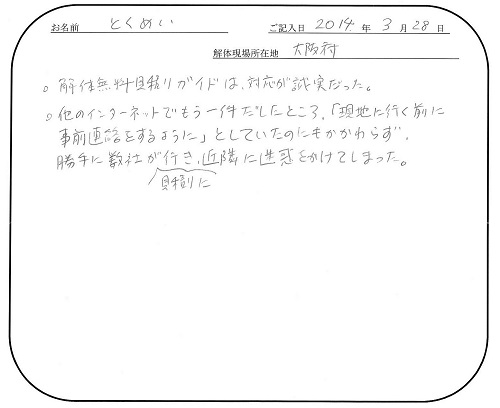 お名前 とくめい ご記入日 2014 年 3 月 28 日
解体現場所在地 大阪府
。解体無料見積りガイドは、対応が誠実だった。
。他のインターネットでもう一件だしたところ、「現地に行く前に
事前電話をするように」としていたのにもかかわらず、
勝手に数社が行き、近隣に迷惑をかけてしまった。
見積りに